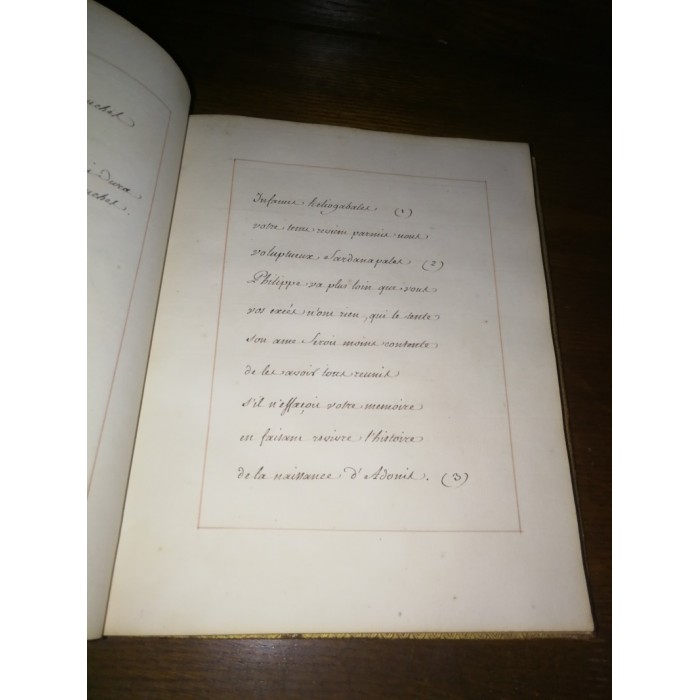 uchet
à Dura
uchet.
Infames heliogabales (1)
votre tems revien parmis nous
voluptueux Sardanapales (2)
Philippe va plus loin que vous
vos excés n'ont rien, qui le tente
son ame Seroit moins contente
de les avoir tous reunis
s'il n'effaçois votre memoire
en faisant revivre l'histoire
de la naissance d'Adonis. (3)